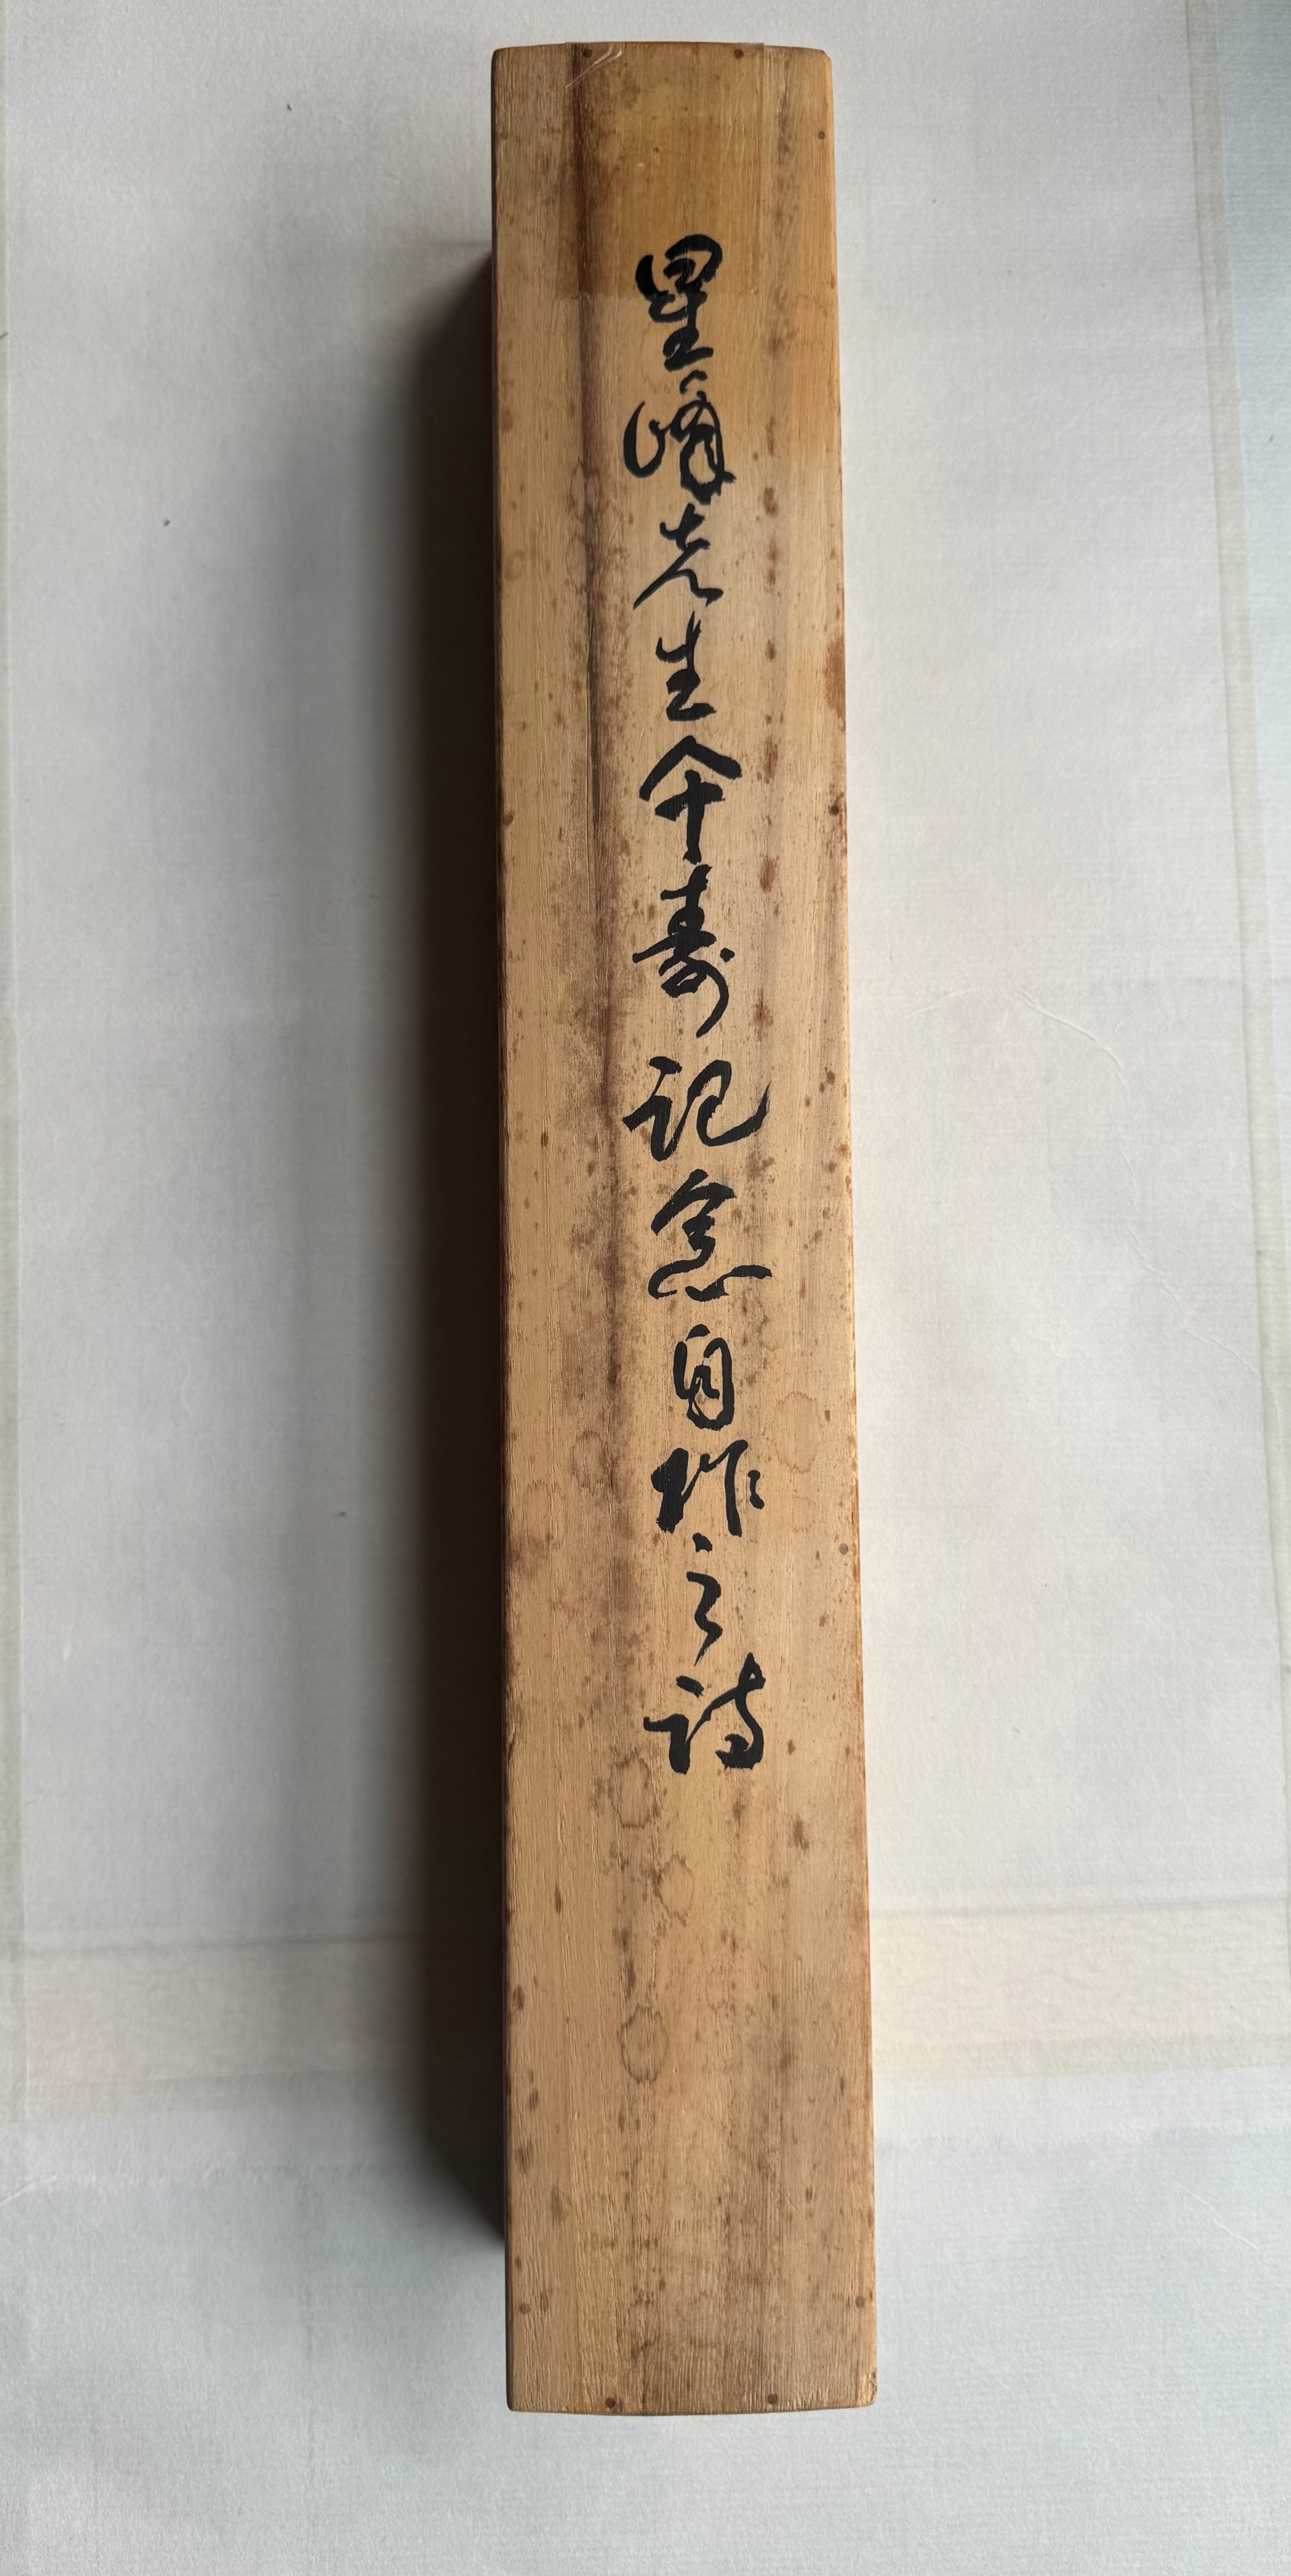 星峰先生傘寿記念自作之詩